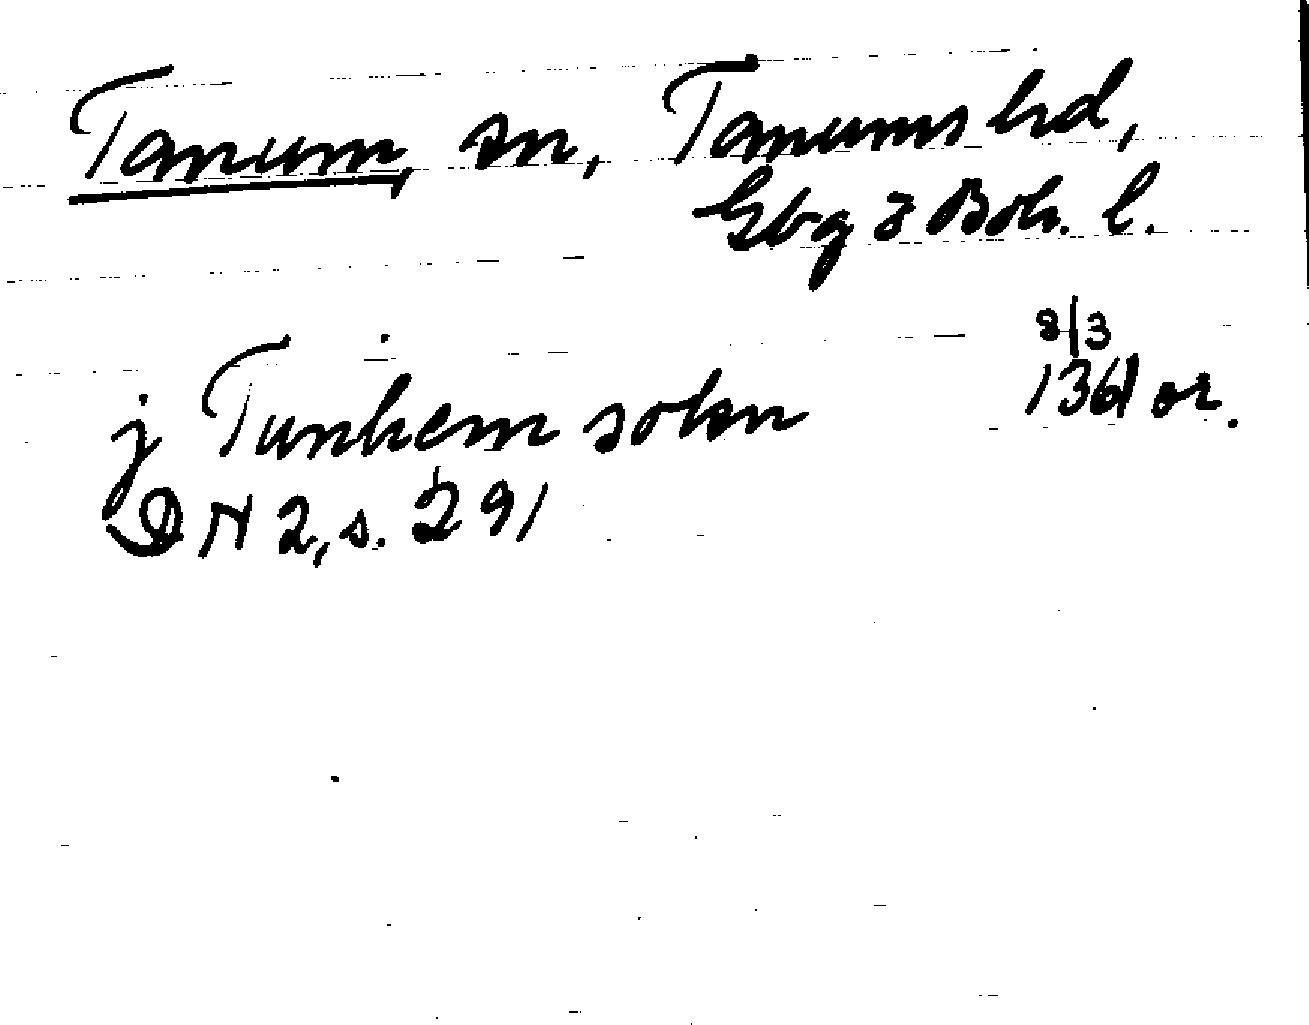 Tanum, sn, Tanums hd,
Gbg o Boh. l.
8/3
j Tunhem sokn 1361 or.
DN 2, s. 291